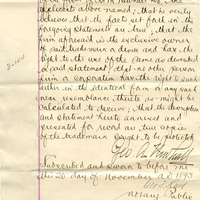 applicant above named; that he verily
believes that the facts set forth in the
foregoing statement are true; that the
firm aforesaid is the exclusive owner
of said trademark a device and has the
right to the use of the same as described
in said statement; that no other person
firm or corporation has the right to such
either in the identical form or any such
near resemblance thereto as might be
calculated to deceive; that the description
and statement hereto annexed and
presented for record are true copies
of the trademark sought to be protected
Geo. A.
Subscribed and sworn to before me
this 20 day of November A.D. 1893
Notary Public